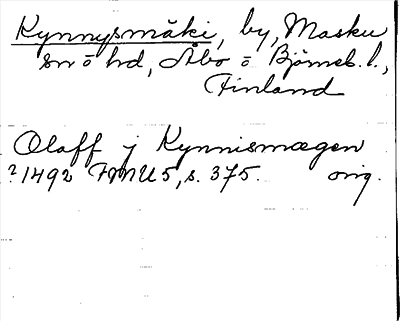 Kynnysmäki, by, Masku
sn o hd, Åbo o Björneb. l.,
Finland
Olaff j Kynnismægen
?1492 FMU 5, s. 375. orig.